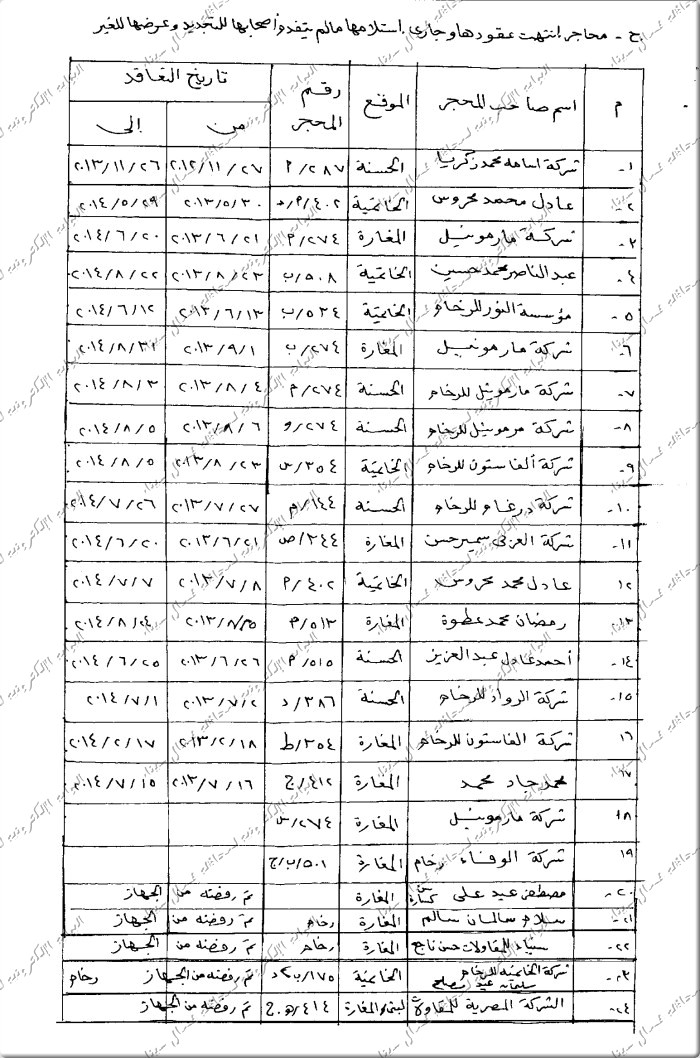 ح - محاجر انتهت عقودها وجارى استلامها مالم يتقدم أصحابها للتجديد وعرضها للغير
م | اسم صاحب المحجر | الموقع | رقم المحجر | تاريخ التعاقد
من | إلى
١- | شركة اسامه محمد زكريا | الحسنة | ٢٨٧/م | ٢٠١٢/١١/٢٧ | ٢٠١٣/١١/٢٦
٢- | عادل محمد محروس | الخاتمية | ٤٠٢/م/د | ٢٠١٣/٥/٣٠ | ٢٠١٤/٥/٢٩
٣- | شركة مارمونيل | المغارة | ٢٧٤/م | ٢٠١٣/٦/٢١ | ٢٠١٤/٦/٢٠
٤- | عبد الناصر محمد حسين | الخاتمية | ٥٠٨/ب | ٢٠١٣/٨/٢٣ | ٢٠١٤/٨/٢٢
٥- | مؤسسة النور للرخام | الخاتمية | ٥٣٤/ب | ٢٠١٣/٦/١٣ | ٢٠١٤/٦/١٢
٦- | شركة مارمونيل | المغارة | ٢٧٤/ب | ٢٠١٣/٩/١ | ٢٠١٤/٨/٣١
٧- | شركة مارمونيل للرخام | الحسنة | ٢٧٤/م | ٢٠١٣/٨/٤ | ٢٠١٤/٨/٣
٨- | شركة مرمونيل للرخام | الحسنة | ٢٧٤/و | ٢٠١٣/٨/٦ | ٢٠١٤/٨/٥
٩- | شركة ألفاستون للرخام | الخاتمية | ٣٥٤/س | ٢٠١٣/٨/٢٣ | ٢٠١٤/٨/٥
١٠- | شركة درغام للرخام | الحسنه | ١٤٤/م | ٢٠١٣/٧/٢٧ | ٢٠١٤/٧/٢٦
١١- | شركة العزبى سمير حسن | المغارة | ٣٤٤/ص | ٢٠١٣/٦/٢١ | ٢٠١٤/٦/٢٠
١٢ | عادل محمد محروس | الخاتمية | ٤٠٢/م | ٢٠١٣/٧/٨ | ٢٠١٤/٧/٧
١٣- | رمضان محمد عطوة | المغارة | ٥١٣/م | ٢٠١٣/٨/٢٥ | ٢٠١٤/٨/٢٤
١٤- | أحمد عادل عبد العزيز | الحسنة | ٥١٥/م | ٢٠١٣/٦/٢٦ | ٢٠١٤/٦/٢٥
١٥- | شركة الرواد للرخام | الحسنة | ٣٨٦/د | ٢٠١٣/٧/٢ | ٢٠١٤/٧/١
١٦ | شركة الفاستون للرخام | المغارة | ٣٥٤/ط | ٢٠١٣/٢/١٨ | ٢٠١٤/٢/١٧
١٧ | محمد جاد محمد | المغارة | ٤١٢/ج | ٢٠١٣/٧/١٦ | ٢٠١٤/٧/١٥
١٨ | شركة مارمونيل | المغارة | ٢٧٤/س
١٩ | شركة الوفاء رخام | المغارة | ٥٠١/ب/ج
٢٠- | مصطفى عيد على | المغارة | تم رفضه من الجهاز
٢١- | سلام سالمان سالم | المغارة | رخام | تم رفضه من الجهاز
٢٢- | سيناء للمقاولات حسن ناجح | المغارة | رخام | تم رفضه من الجهاز
٢٣- | شركة الخاتمية للرخام | الخاتمية | ١٧٥/ب | تم رفضه من الجهاز رخام
سليمان عيد
٢٤- | الشركة المصرية للمقاولات | المغارة | ٤١٤/ه.ج | تم رفضه من الجهاز